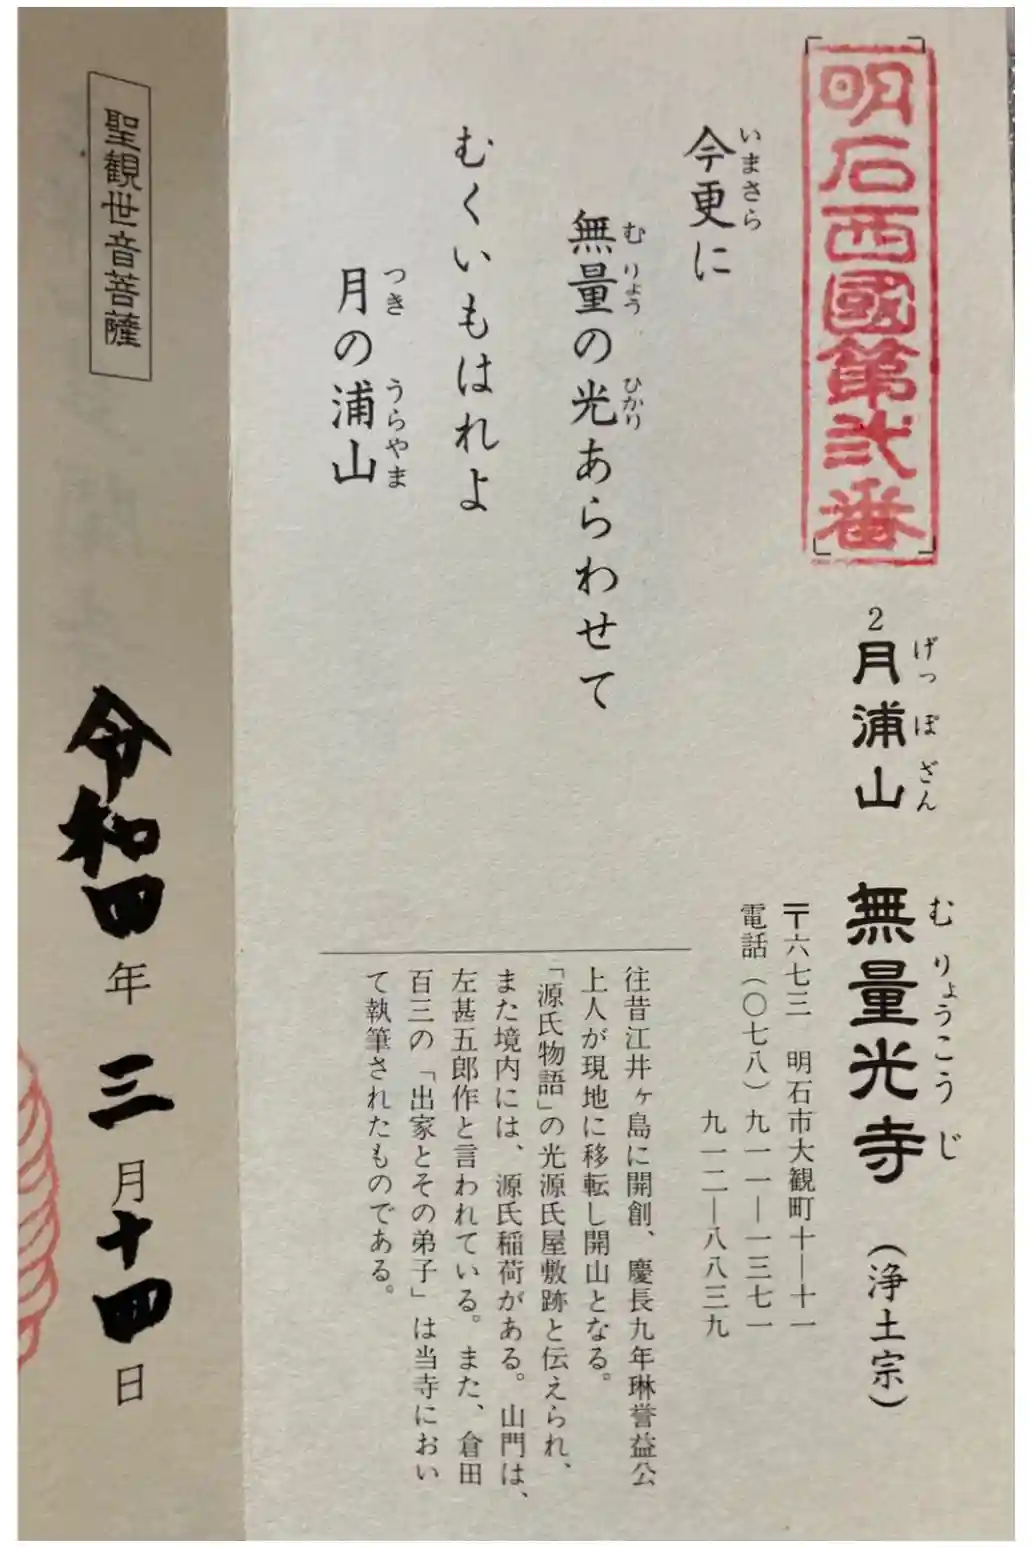 明石西國第弐番
2月浦山 無量光寺 (浄土宗)
げっぽざん むりょうこうじ
〒六七三 明石市大観町十―十一
電話(〇七八)九一一―一三七一
九一二―八八三九
今更に
いまさら
無量の光あらわせて
むりょう ひかり
むくいもはれよ
月の浦山
つき うらやま
往昔江井ヶ島に開創、慶長九年琳誉益公
上人が現地に移転し開山となる。
「源氏物語」の光源氏屋敷跡と伝えられ、
また境内には、源氏稲荷がある。山門は、
左甚五郎作と言われている。また、倉田
百三の「出家とその弟子」は当寺におい
て執筆されたものである。
聖観世音菩薩
令和四年三月十四日